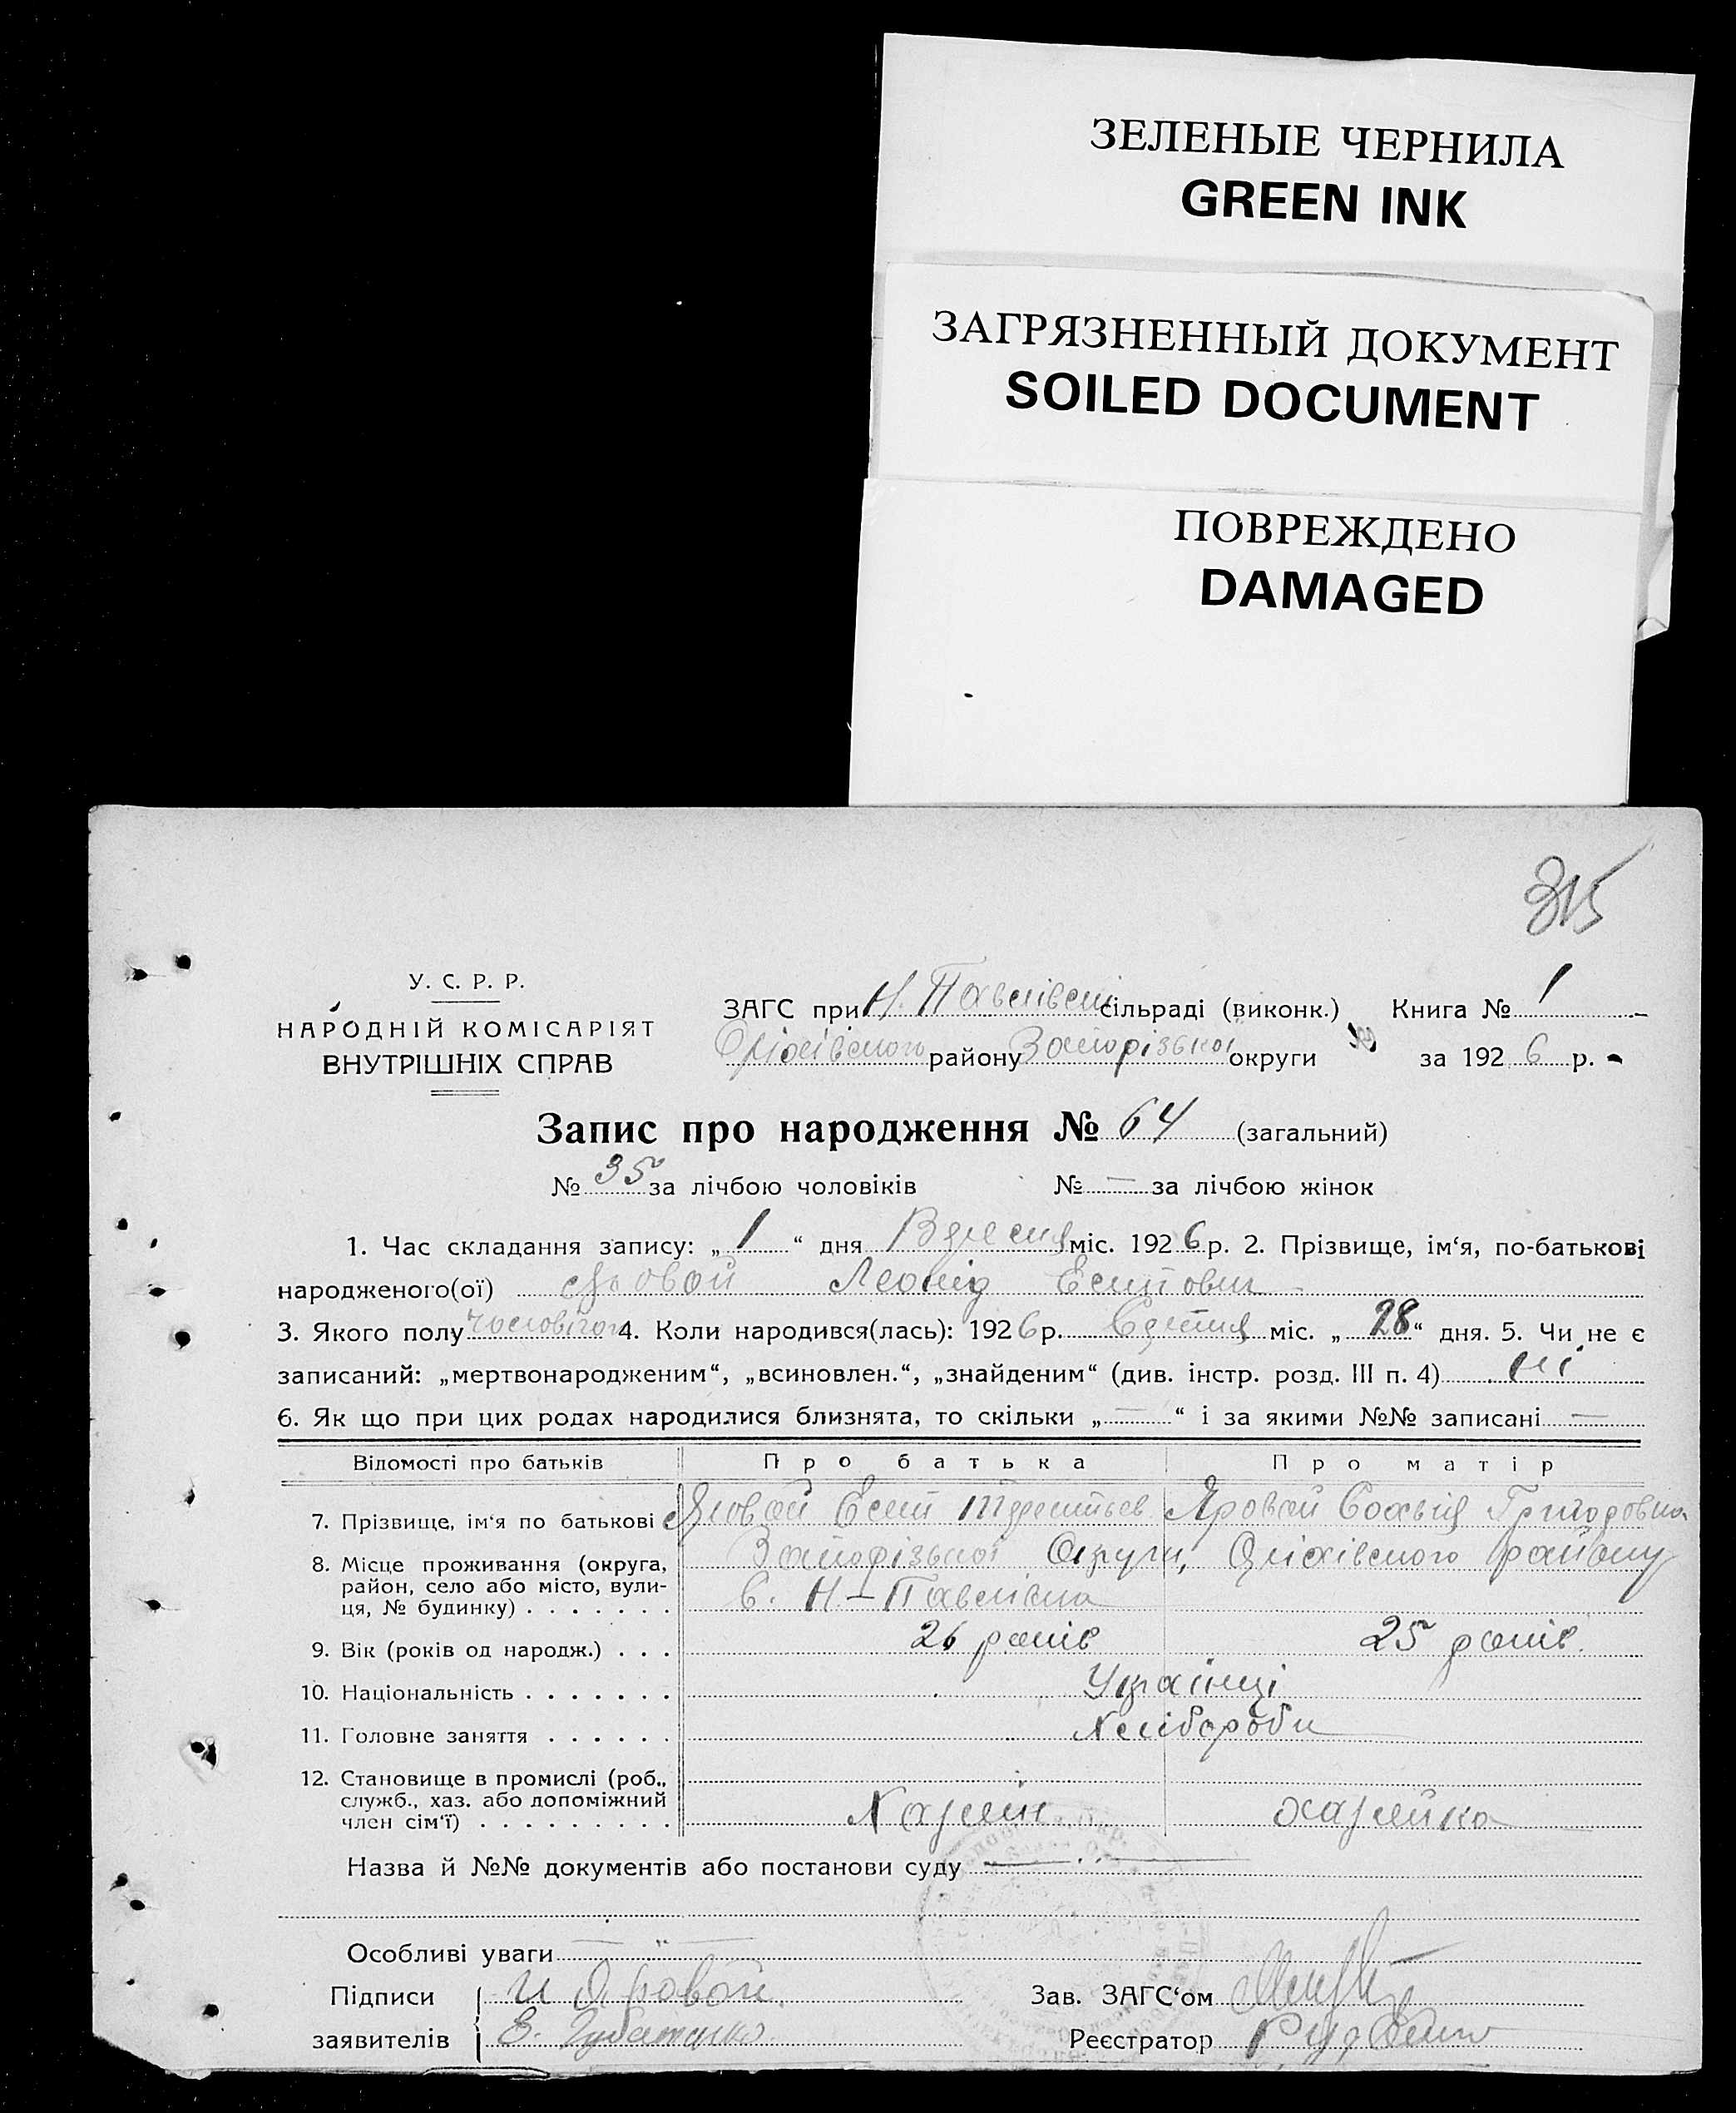 ЗЕЛЕНЫЕ ЧЕРНИЛА
GREEN INK
ЗАГРЯЗНЕННЫЙ ДОКУМЕНТ
SOILED DOCUMENT
ПОВРЕЖДЕНО
DAMAGED
315
У. С. Р. Р.
НАРОДНІЙ КОМІСАРІЯТ
ВНУТРІШНІХ СПРАВ
ЗАГС при Н. Павлівськ сільраді (виконк.) Книга № 1
Оріхівського району Запорізької округи за 1926 р.
Запис про народження № 64 (загальний)
№ 35 за лічбою чоловіків № — за лічбою жінок
1. Час складання запису: „ 1 “ дня Вересня міс. 1926 р. 2. Прізвище, ім‘я, по-батькові
народженого(ої) Яровой Леонід Есипович
3. Якого полу 4. Коли народився(лась): 1926 р. Серпня міс. „ 28 “ дня. 5. Чи не є
записаний: „мертвонародженим“, „всиновлен.“, „знайденим“ (див. інстр. розд. III п. 4) ні
6. Як що при цих родах народилися близнята, то скільки „ — “ і за якими №№ записані —
Відомості про батьків Про батька Про матір
7. Прізвище, ім‘я по батькові Яровой Есип Терентьев Яровой Софія Григоровна
8. Місце проживання (округа, Запорізької Округи, Оріхівського району
район, село або місто, вули- С. Н-Павлівка
ця, № будинку) . . . . . . .
9. Вік (років од народж.) . . . 26 років 25 років.
10. Національність . . . . . . . Українці
11. Головне заняття . . . . . . Хлібороби
12. Становище в промислі (роб.,
служб., хаз. або допоміжний Хазяїн хазяйка
член сім‘ї) . . . . . . . . .
Назва й №№ документів або постанови суду
Особливі уваги — „ —
Підписи И Яровой. Зав. ЗАГС‘ом
заявителів Е. Реєстратор